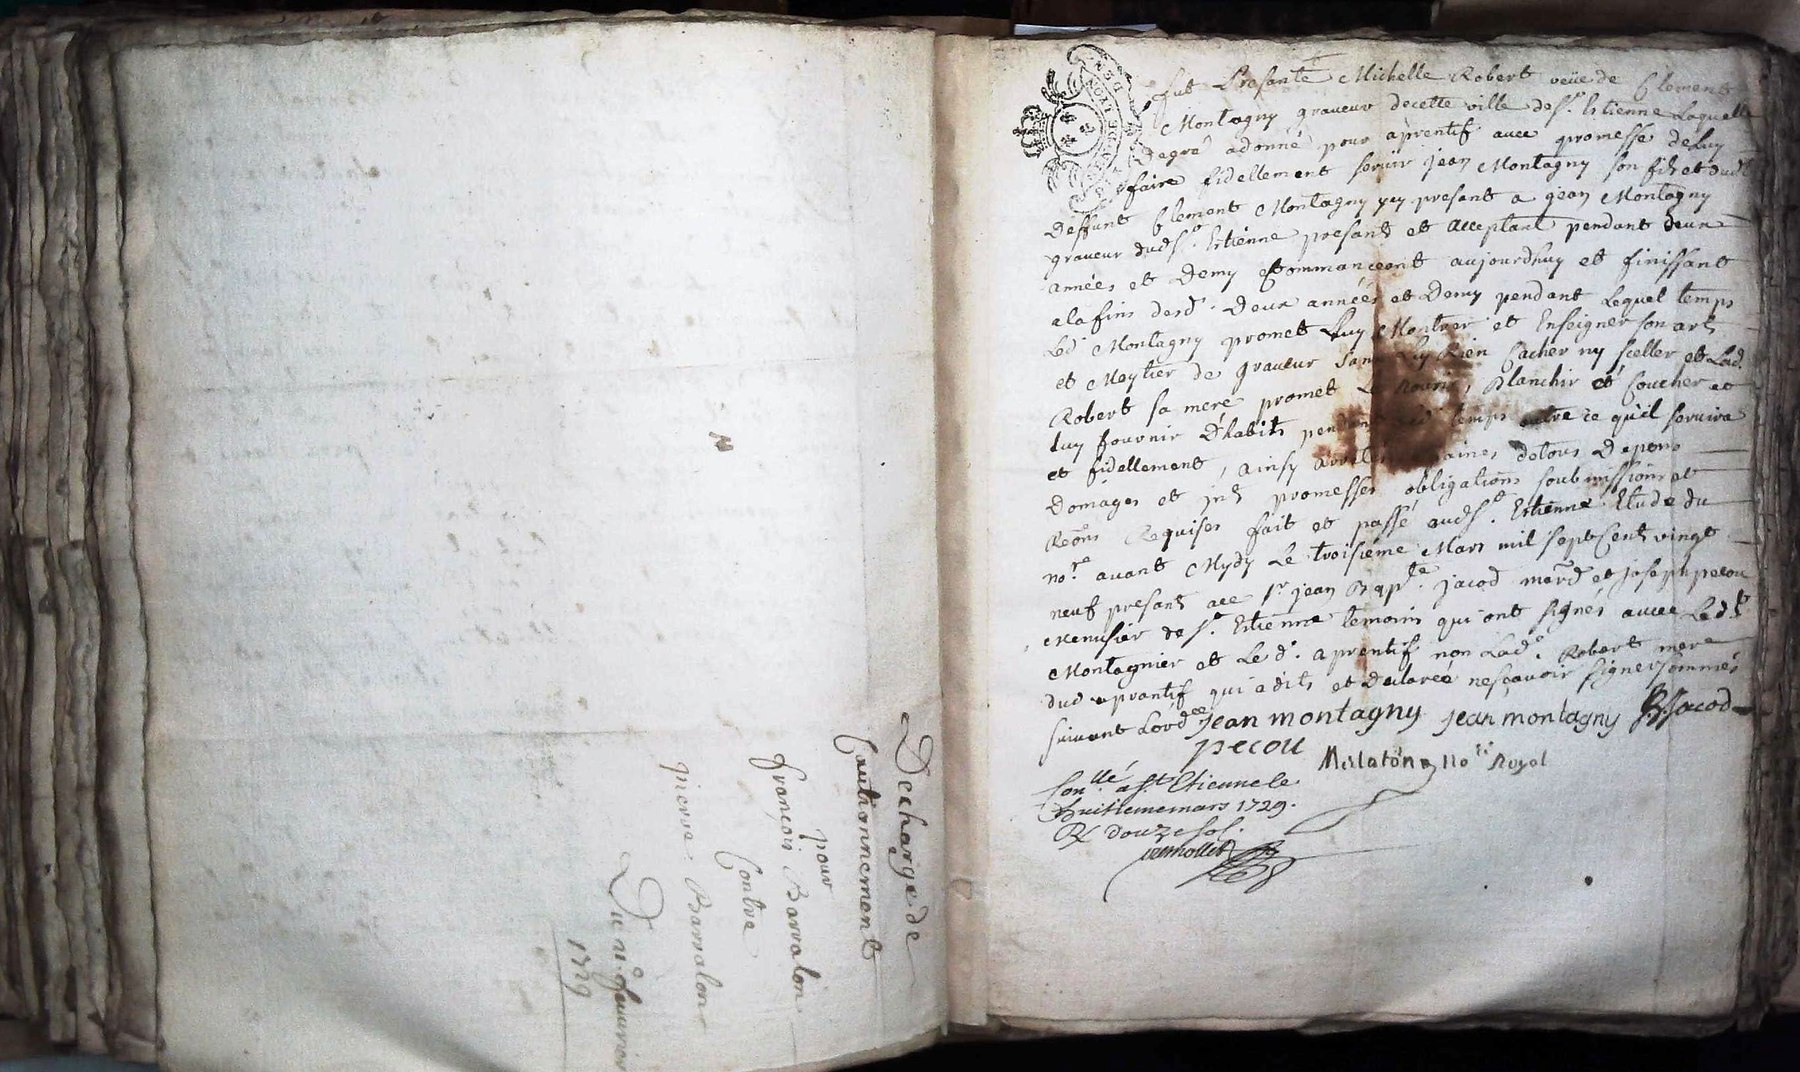 Decharge de
Cautionnement
pour
françois Barralon
Contre
pierre Barralon
Du 21e feuvrier
1729
fut Presante Michelle Robert veüe de Clement
Montagny graveur decette ville de St. Estienne Laquelle
degré adonné pour aprentif avec promesse deluy
faire fidellement servir jean Montagny son fils et dudt
deffunt Clement Montagny yey present a jean Montagny
graveur dud St. Estienne presant et acceptant pendant deux
années et Demy Commanceant aujourdhuy et finissant
alafins desd. deux années et Demy pendant Lequel temps
Led. Montagny promet Luy Montrer et Enseigner son art
et Meytier de graveur sans Luy Rien Cacher ny sceller et Lad.
Robert sa mere promet Le Nourir, Blanchir et Coucher et
luy fournir D'habits pendant Led. temps outre ce qu'il servira
et fidellement, ainsy aines detous Depens
Domages et jnts promesses obligations soubmissions et
Reōns Requises fait et passé aud St. Estienne Etude du
nore. avant Mydy Le troisiéme Mars mil sept Cents vingt
neuf presant ace sr. jean Bapte. jacod mard et joseph pecou
Menusier de St. Estienne temoins qui ont signés avec Ledt
Montagnier et Led. aprentif non Lade. Robert mere
dud aprantif qui adits et declarée nesçavoir signer sommés
suivant Lordce jean montagny jean montagny B Jacod
pecou Millaton nore Royal
Conllé. a St Etienne le
huitieme mars 1729.
R douze sols.